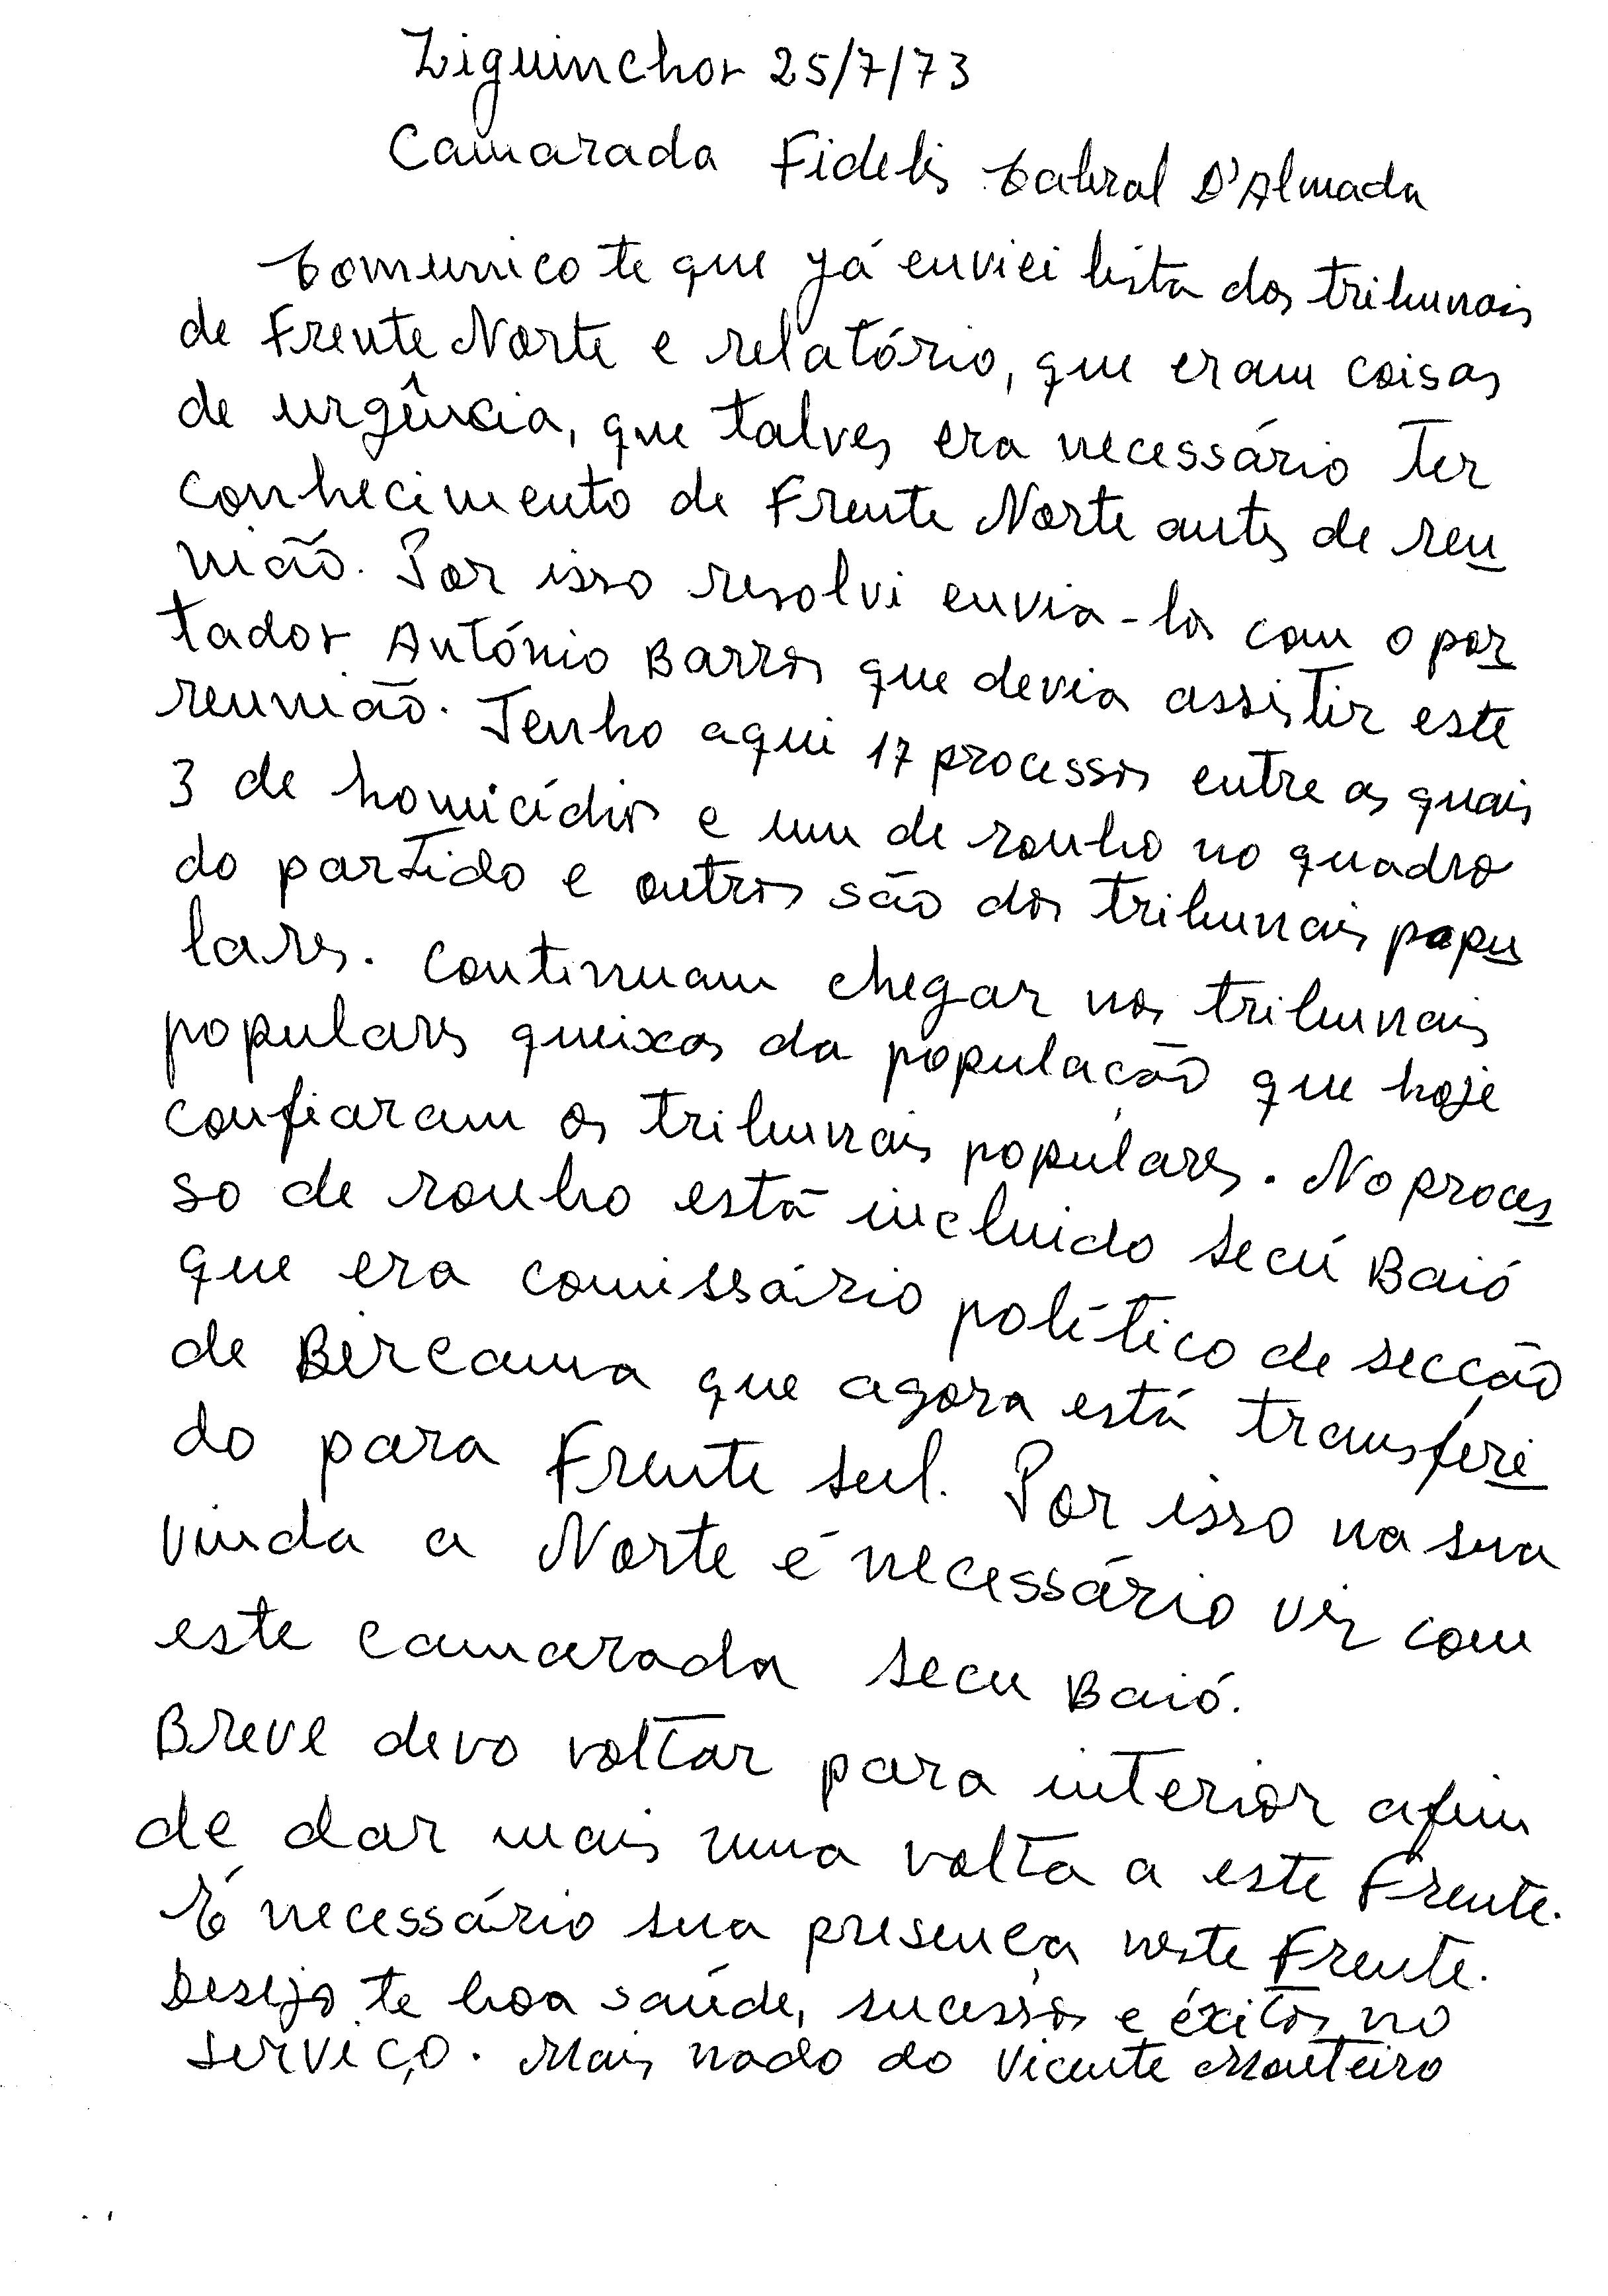 Ziguinchor 25/7/73
Camarada Fidelis Cabral D'Almada
Comunico te que já enviei lista dos tribunais
de Frente Norte e relatório, que eram coisas
de urgência, que talves era necessário ter
conhecimento de Frente Norte antes de reu
nião. Por isso resolvi envia-los com o por
tador António Barros que devia assistir este
reunião. Tenho aqui 17 processos entre as quais
3 de homicídios e um de roubo no quadro
do partido e outros são dos tribunais popu
lares. Continuam chegar nos tribunais
populares queixas da população que hoje
confiaram os tribunais populares. No proces
so de roubo está incluido Secú Baió
que era comissário político de secção
de Bircama que agora está transferi
do para Frente sul. Por isso na sua
vinda a Norte é necessário vir com
este camarada Secu Baió.
Breve devo voltar para interior afim
de dar mais uma volta a este Frente.
É necessário sua presença neste Frente.
Desejo te boa saúde, sucessos e éxitos no
serviço. Mais nado do Vicente Monteiro